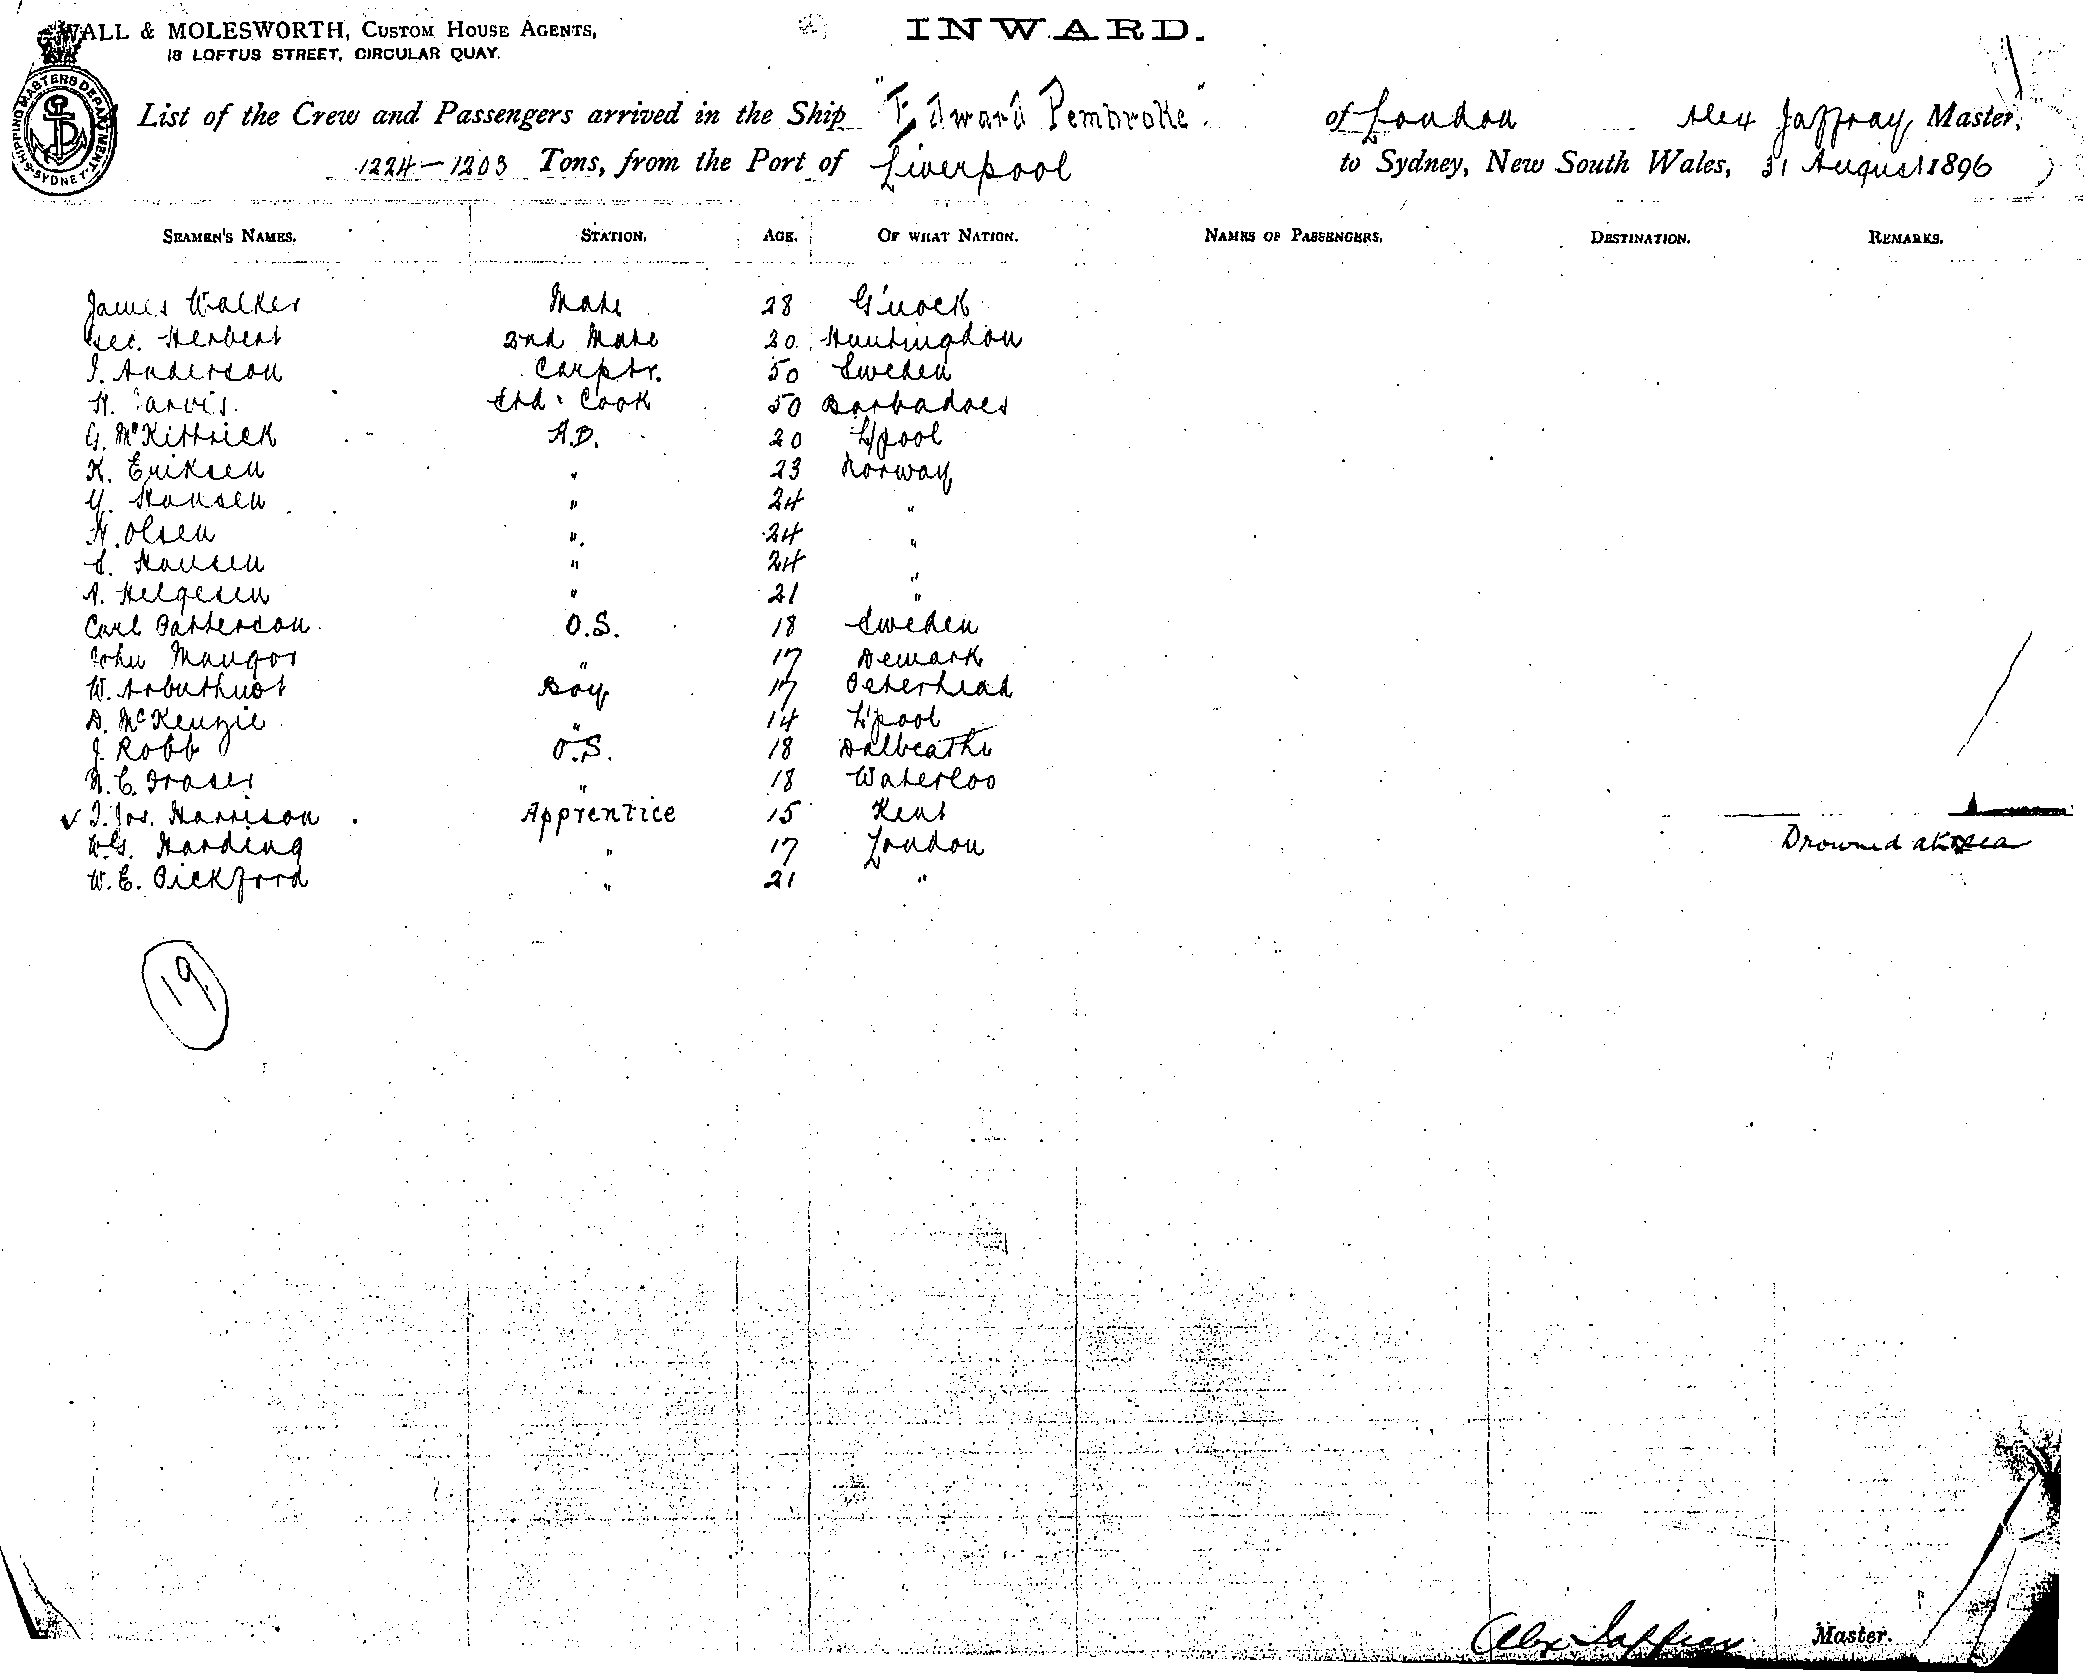 WALL & MOLESWORTH, CUSTOM HOUSE AGENTS,
18 LOFTUS STREET, CIRCULAR QUAY.
INWARD.
SHIPPING MASTERS DEPARTMENT SYDNEY
List of the Crew and Passengers arrived in the Ship "Edward Pembroke" of London Alex Jaffray, Master,
1224 - 1203 Tons, from the Port of Liverpool to Sydney, New South Wales, 31 August 1896
SEAMEN'S NAMES. STATION. AGE. OF WHAT NATION. NAMES OF PASSENGERS. DESTINATION. REMARKS.
James Walker Mate 28 G'nock
Geo. Herbert 2nd Mate 20 Huntingdon
J. Anderson Carptr. 50 Sweden
H. Jarvis. Std. Cook 50 Barbadoes
G. McKittrick A.B. 20 L'pool
K. Eriksen " 23 Norway
Y. Hansen " 24 "
H. Olsen " 24 "
S. Hansen " 24 "
A. Helgesen " 21 "
Carl Patterson O.S. 18 Sweden
John Maugor " 17 Demark
W. Arbuthnot Boy 17 Peterhead
D. McKenzie " 14 L'pool
J. Robb O.S. 18 Dalbeathe
N. C. Fraser " 18 Waterloo
✓ T. Jos. Harrison Apprentice 15 Kent
W.G. Harding " 17 London Drowned at sea
W. E. Pickford " 21 "
19
Alex Jaffray Master.